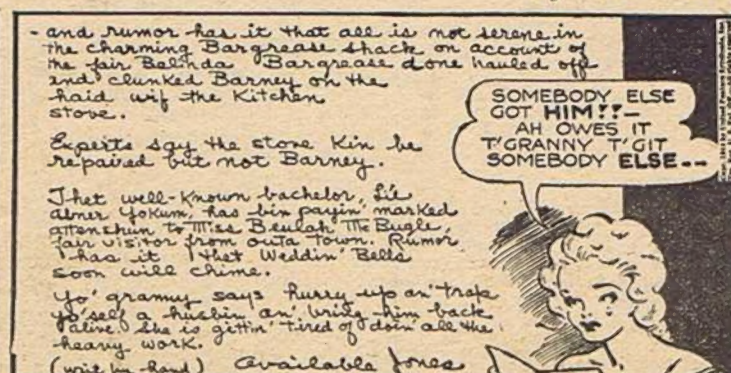 - and rumor has it that all is not serene in
the charming Bargrease shack on account of
the fair Belinda Bargrease done hauled off
and clunked Barney on the
haid wif the Kitchen
stove.
Experts say the stove kin be
repaired but not Barney.
Thet well-known bachelor, Li'l
Abner Yokum, has bin payin' marked
attenshun to Miss Beulah McBugle,
fair visitor from outa town. Rumor
has it thet Weddin' Bells
soon will chime.
Yo' granny says hurry up an' trap
yo'self a husbin an' bring him back
alive. She is gittin' tired of doin' all the
heavy work.
(writ by hand) Available Jones
SOMEBODY ELSE
GOT HIM!!—
AH OWES IT
T'GRANNY T'GIT
SOMEBODY ELSE--